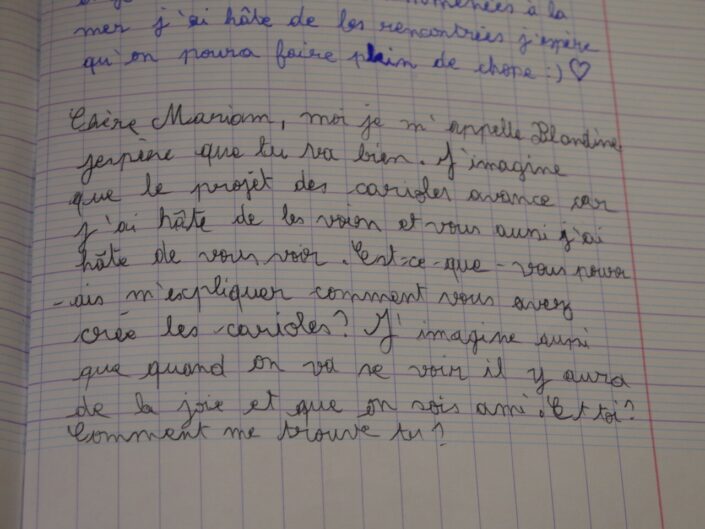 à la
mer j'ai hâte de les rencontrées j'espère
qu'on poura faire plein de chope :) ♡
Chère Mariam, moi je m'appelle Blandine
jerpère que tu va bien. J'imagine
que le projet des carioles avance car
j'ai hâte de les voion et vous aussi j'ai
hâte de vous voir. Est-ce-que-vous pouvor
-ais m'expliquer comment vous avez
crée les carioles? J'imagine aussi
que quand on va se voir il y aura
de la joie et que on sois ami. Et toi?
Comment me trouve tu?